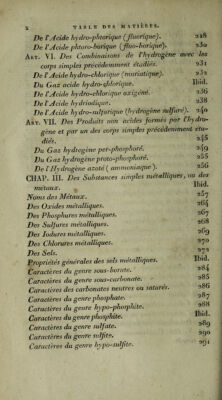 x TABLE DES MATIÈRES.
De l'Acide hydro-phtorique (fluorique). 228
De l'Acide phtoro-borique (fluo-borique). 230
Art. VI. Des Combinaisons de l'hydrogène avec les
corps simples précédemment étudiés. 231
De l'Acide hydro-chlorique (muriatique). 232
Du Gaz acide hydro-chlorique. Ibid.
De l'Acide hydro-chlorique oxigéné. 236
De l'Acide hydriodique. 238
De l'Acide hydro-sulfurique (hydrogène sulfuré). 240
Art. VII. Des Produits non acides formés par l'hydro-
gène et par un des corps simples précédemment étu-
diés. 245
Du Gaz hydrogène per-phosphoré. 249
Du Gaz hydrogène proto-phosphoré. 255
De l'Hydrogène azoté (ammoniaque). 256
CHAP. III. Des Substances simples métalliques, ou des
métaux. Ibid.
Noms des Métaux. 257
Des Oxides métalliques. 264
Des Phosphures métalliques. 267
Des Sulfures métalliques. 268
Des Iodures métalliques. 269
Des Chlorures métalliques. 270
Des Sels. 272
Propriétés générales des sels métalliques. Ibid.
Caractères du genre sous-borate. 284
Caractères du genre sous-carbonate. 285
Caractères des carbonates neutres ou saturés. 286
Caractères du genre phosphate. 287
Caractères du genre hypo-phosphite. 288
Caractères du genre phosphite. Ibid.
Caractères du genre sulfate. 289
Caractères du genre sulfite. 290
Caractères du genre hypo-sulfite. 291